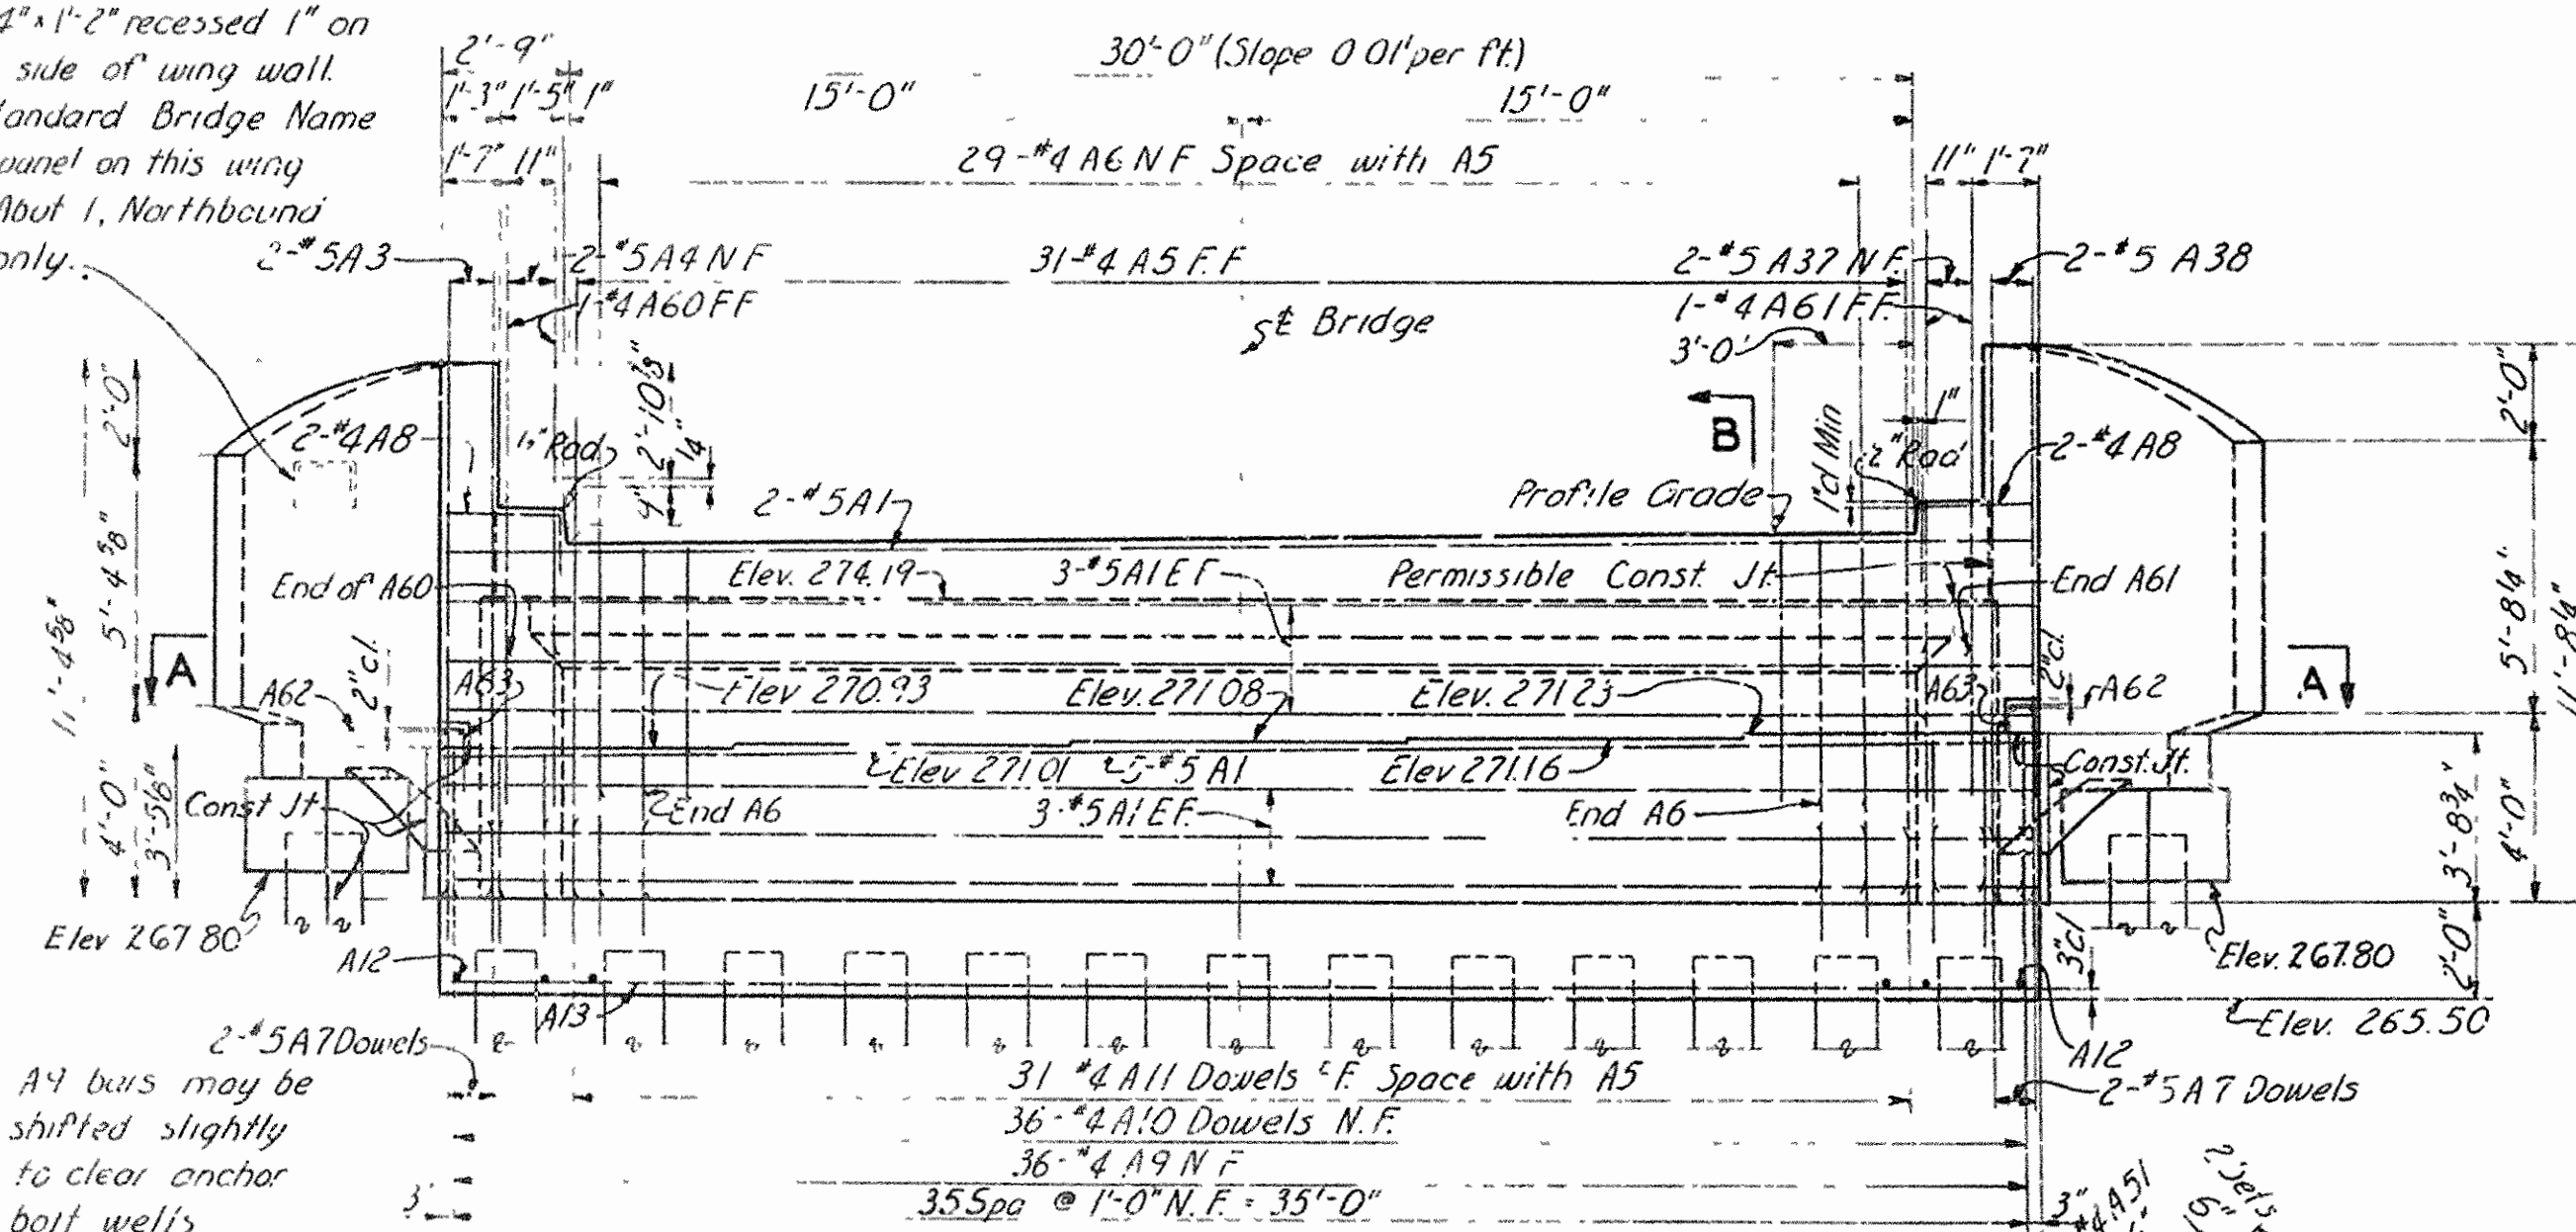 4" x 1'-2" recessed 1" on
side of wing wall.
Standard Bridge Name
panel on this wing
Abut 1, Northbound
only.
2'-9"
1'-3" 1'-5" 1"
1'-7" 11"
30'-0" (Slope 0.01' per ft.)
15'-0"
15'-0"
29-#4 A6 N F Space with A5
11" 1'-7"
2-#5A3
2-#5A4 N F
31-#4 A5 F.F
2-#5 A37 N F.
2-#5 A38
1-#4 A60 FF
1-#4 A61 F.F.
℄ Bridge
3'-0"
2'-0"
2-#4A8
2'-10⅜"
¼"
4"
B
1" Min
1"
2" Rad
2-#4 A8
2'-0"
2-#5A1
Profile Grade
5'-4⅝"
End of A60
Elev. 274.19
3-#5A1 E F
Permissible Const. Jt.
End A61
11'-4⅝"
5'-8¼"
11'-8¼"
A
A62
2" cl.
A63
Elev 270.93
Elev. 271.08
Elev. 271.23
A63
2" cl.
A62
A
Elev 271.01
5-#5 A1
Elev 271.16
Const. Jt.
4'-0"
3'-5⅛"
Const Jt
End A6
3-#5A1 E.F.
End A6
3'-8¾"
4'-0"
Elev 267.80
A12
A13
3" cl
2'-0"
Elev. 267.80
Elev. 265.50
A12
2-#5A7 Dowels
31 #4 A11 Dowels F.F. Space with A5
2-#5 A7 Dowels
A9 bars may be
shifted slightly
to clear anchor
bolt wells
36-#4 A10 Dowels N.F.
36-#4 A9 N F
3"
35 Spa @ 1'-0" N.F. = 35'-0"
3"
#4 A51